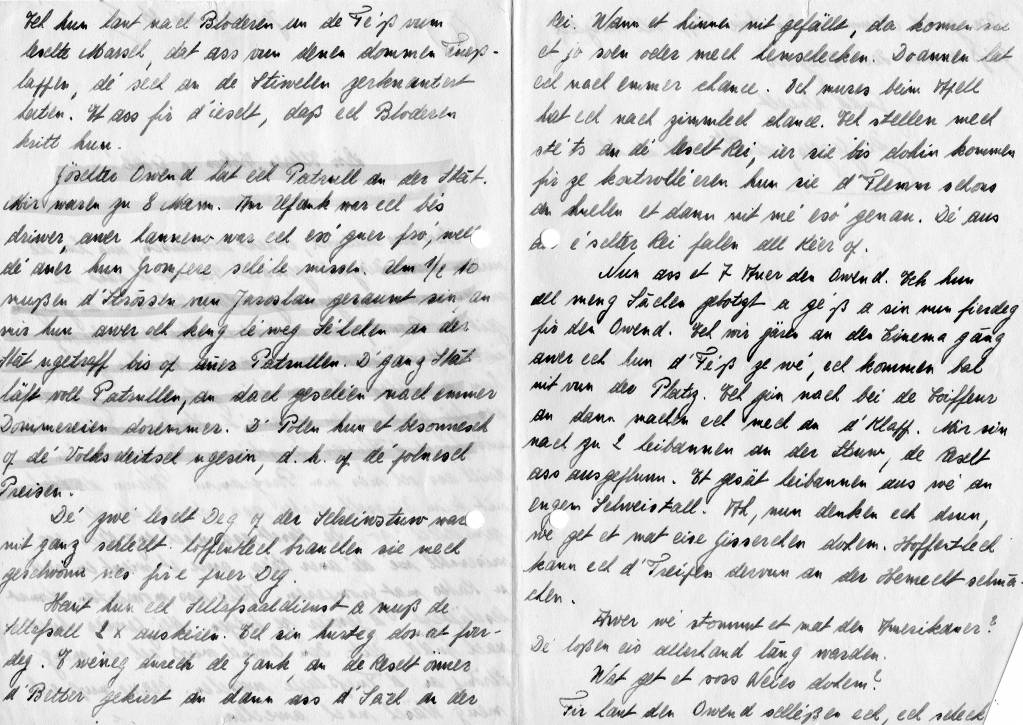 Ech hun lant nach Bloderen un de Féiß vum
leschte Marsch, dat ass vun denen dommen
laffen, dé sech an de Stiwelen
heiten. Et ass fir d'iescht, daß ech Bloderen
kritt hun.
Göschter Owend hat ech Patrull an der Stât.
Mir waren zu 8 Mann. Am Ufank war ech bis
driwer, awer hanneno was ech esó guer fró, well
dé aner hun Grompere schéile missen. Um 1/2 10
mußen d'Strôssen vun Jaroslau geraumt sin an
mir hun awer och keng éneweg Séilchen an der
Stât ugetraff bis op aner Patrullen. D'ganz Stât
läft voll Patrullen, an dach geschéien nach emmer
Dommereien doremmer. D'Polen hun et besonnesch
op dé Volksdeitsch ugesin, d.h. op dé polnesch
Preisen.
Dé zwé lescht Deg op der Scheinstuw war
nit ganz schlecht. Hoffentlech brauchen sie mech
geschwënn nes fir e puer Deg.
Haut hun ech Schlofsaaldienst a muß de
Schlofsall 2 x auskéieren. Ech sin lusteg domat fäer-
deg. E wéineg duerch de Gank an de Rescht ënner
d'Better gekiert an dann ass d'Saach an der
Rei. Wann et hinnen nit gefällt, da konnen sie
et jo soen oder mech hemschecken. Doannen hat
ech nach emmer chance. Och mues beim Apell
hat ech nach zimmlech chance. Ech stellen mech
stéits an dé lescht Rei, ier sie bis dohin kommen
fir ze kontrolléieren hun sie d'Flemm schons
an huelen et dann nit mé esó genau. Dé aus
der éischter Rei falen all Kéier op.
Nun ass et 7 Auer den Owend. Ech hun
all meng Saachen gebotzt a géß a sin nun fierdeg
fir den Owend. Ech wir gären an den Cinema gâng
awer ech hun d'Féiß ze wé, ech kommen bal
nit vun der Platz. Ech gin nach bei de Coiffeur
an dann machen ech mech an d'Klaff. Mir sin
nach zu 2 heibannen an der Stuw, de Rescht
ass ausgeflunn. Et gesäit heibannen aus wé an
engem Schweistall. Ah, nun denken ech drun,
wé get et mat eise Gisserchen dohem. Hoffentlech
kann ech d'Treipen dervun an der Hemecht schma-
chen.
Awer wé stommt et mat den Amerikaner?
Dé loßen eis allerhand lâng warden.
Wat get et soss Neies dohem?
Fir haut den Owend schléißen ech, ech schreck